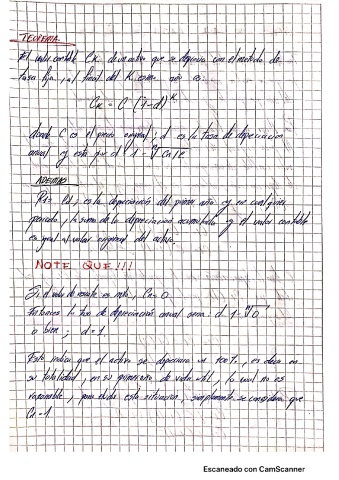 TEOREMA
El valor contable Ck de un activo que se deprecia con el método de
tasa fija, al final del k-ésimo año es:
Ck = C (1-d)^k
donde C es el precio original, d es la tasa de depreciación
anual y está por d 1 - ⁿ√Cn/C
ADEMÁS
R1 = Cd, es la depreciación del primer año y en cualquier
periodo, la suma de la depreciación acumulada y el valor contable
es igual al valor original del activo.
NOTE QUE!!!
Si el valor de rescate es nulo, Cn = 0
Entonces la tasa de depreciación anual sería: d 1 - ⁿ√0
o bien; d = 1
Esto indica que el activo se depreciara un 100%, es decir en
su totalidad, en su primer año de vida útil, lo cual no es
razonable, para esta situación, simplemente se considera que
= 1
Escaneado con CamScanner